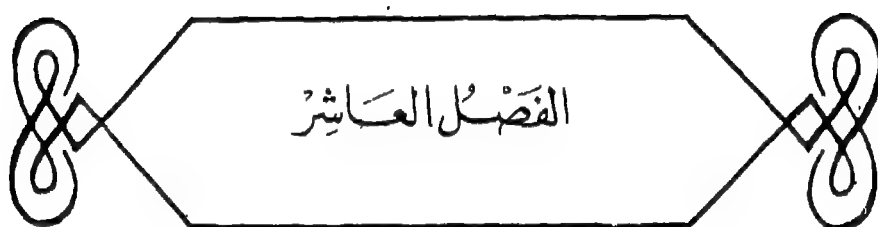 الفَصْلُ العَاشِرْ